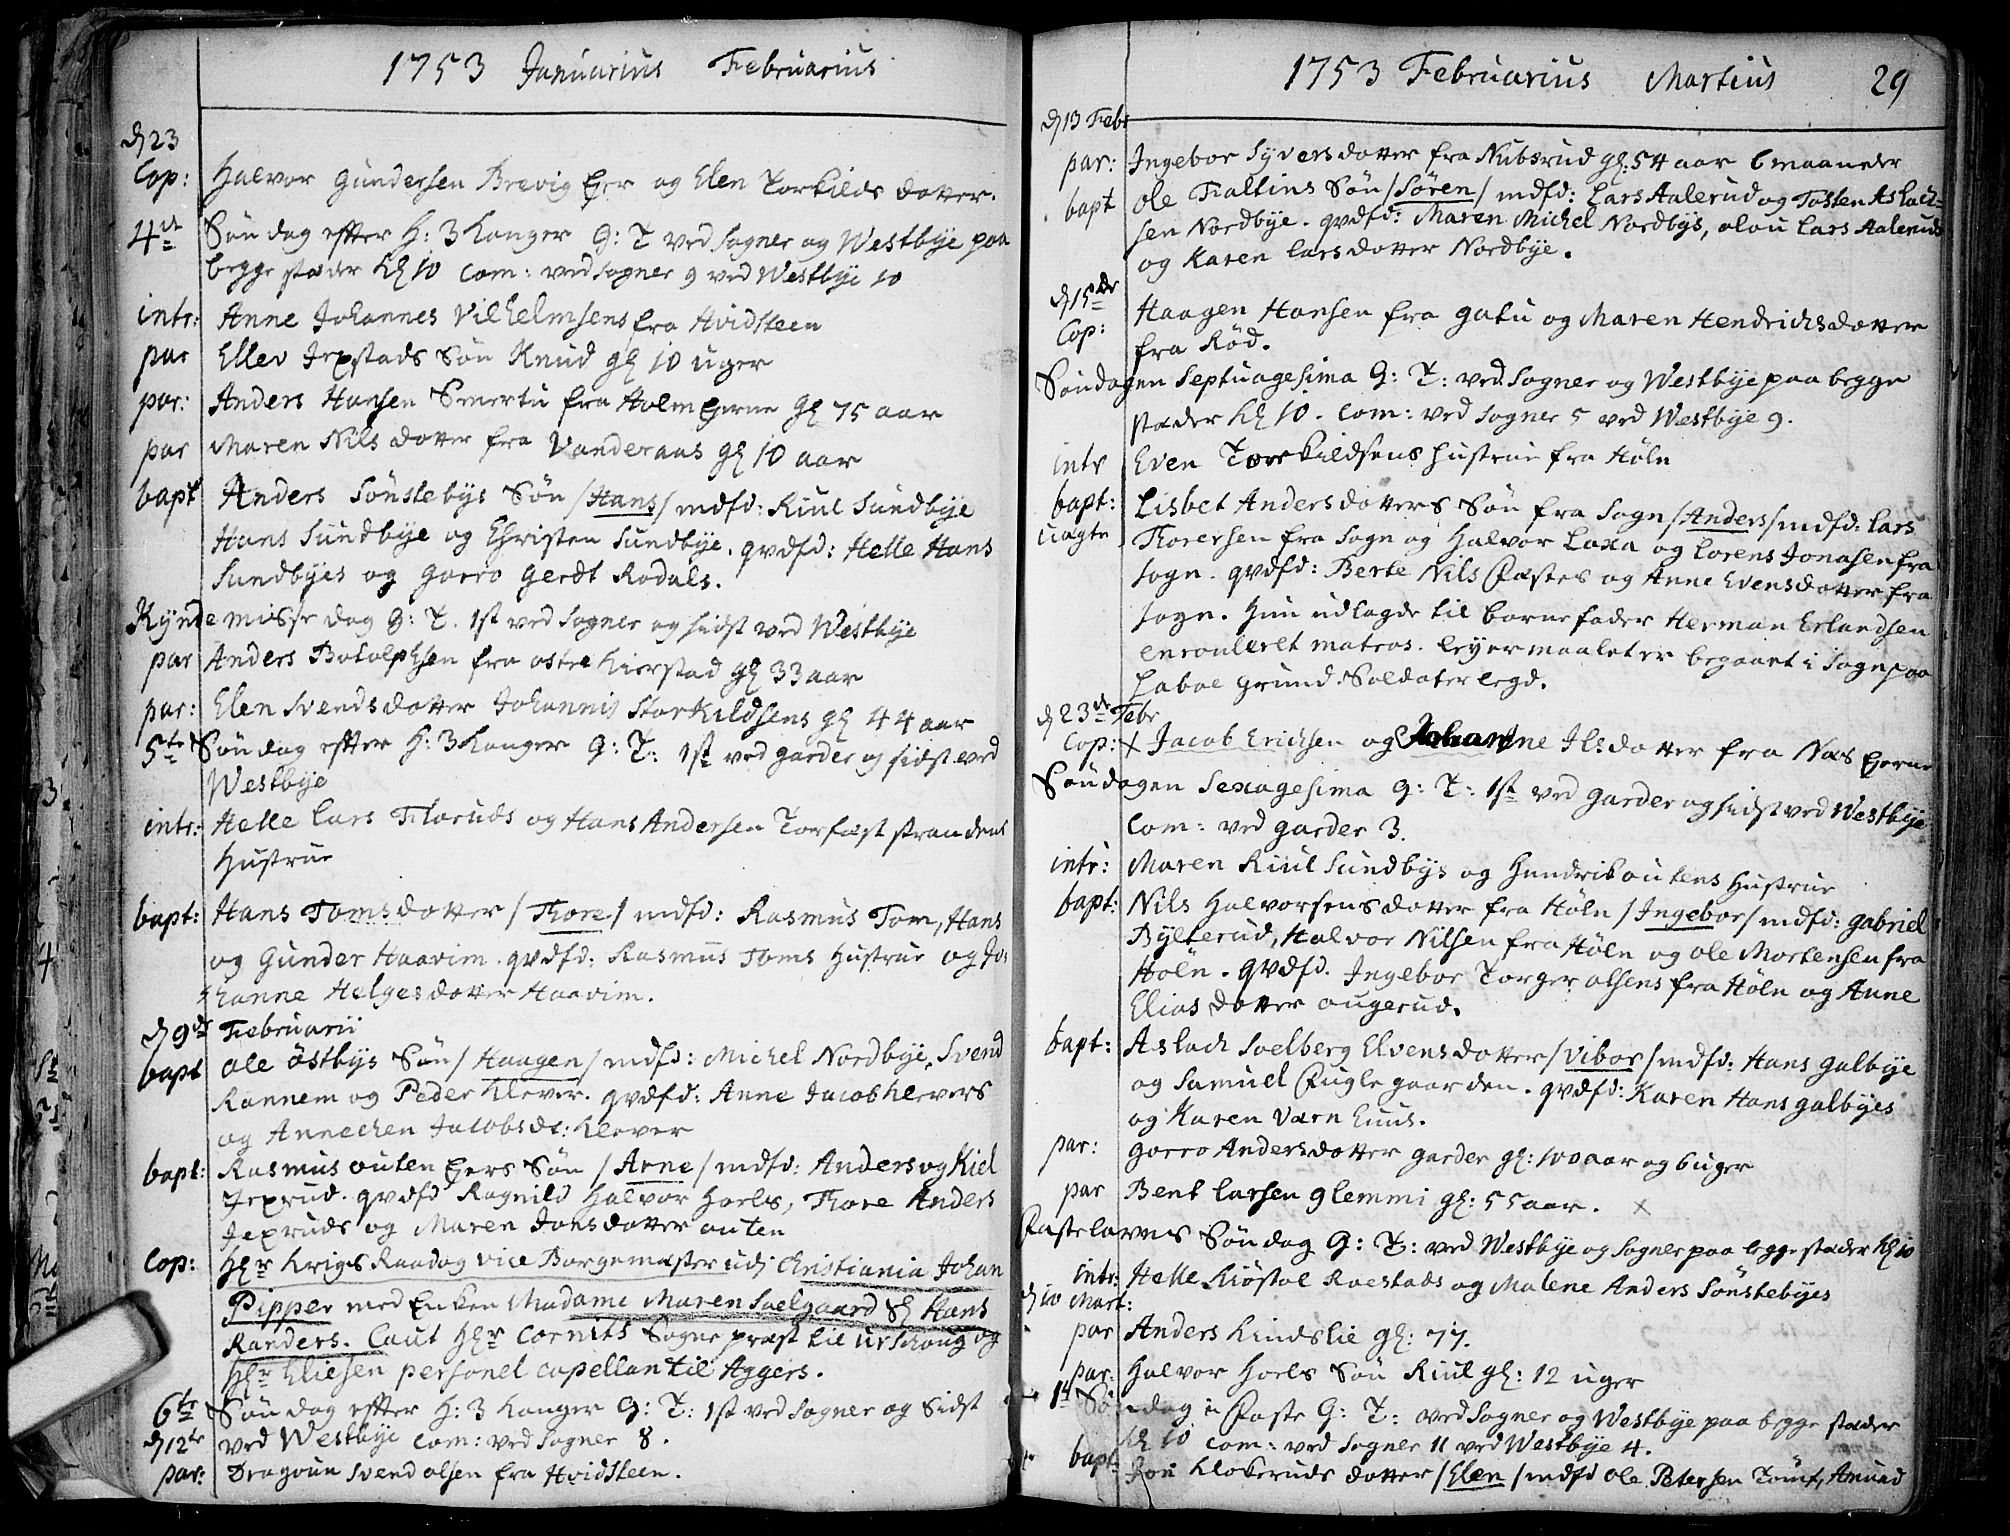 1753 Januarius Februarius
d 23
Cop: Halvor Gundersen Brevig Eger og Elen Torkilds dotter.
4de Søndag effter H: 3 Konger G: T ved Sogner og Westbye paa
begge stæder Kl 10 Com: ved Sogner 9 ved Westbye 10
intr: Anne Johannes Vilhelmsens fra Hvidsteen
par Ellev Jexstads Søn Knud gl 10 uger
par: Anders Hansen Smertu fra Holm Egerne gl 75 aar
par Maren Nils dotter fra Vanderaas gl 10 aar
bapt Anders Sønstebys Søn /Hans/ mdfd: Riul Sundbye
Hans Sundbye og Christen Sundbye. qvdfd: Helle Hans
Sundbyes og Gorro Gerdt Rodals.
Kyndemisse dag G: T. 1st ved Sogner og sidst ved Westbye
par Anders Botolphsen fra østre Kierstad gl 33 aar
par: Elen Svends dotter Johannis Storkildsens gl 44 aar
5te Søndag effter H: 3 Konger G: T: 1st ved garder og sidst ved
Westbye
intr: Helle Lars Floruds og Hans Andersen Torfæst strandens
Hustrue
bapt: Hans Toms dotter /Thore/ mdfd: Rasmus Tom, Hans
og Gunder Haavim. qvdfd: Rasmus Toms Hustrue og Jo-
hanne Helgesdotter Haavim.
d 9de Februarii
bapt Ole Østbys Søn /Haagen/ mdfd: Michel Nordbye, Svend
Rannem og Peder Klever. qvdfd: Anne Jacob Klevers
og Annechen Jacobsdr: Klever
bapt: Rasmus outen Egers Søn /Arne/ mdfd: Anders og Kiel
Jexrud. qvdfd Ragnild Halvor Hoels, Thore Anders
Jexruds og Maren Jonsdotter outen
Cop: Hlr Krigs Raadog vice Borgemester udi Christiania Johan
Pipper med Enken Madame Maren Soelgaard Sl Hans
Randers. Caut Hlr Cornits Sogne præst til Urschoug og
Hlr Eliesen personel capellan til Aggers.
6te Søndag effter H: 3 Konger G: T: 1st ved Sogner og Sidst
d 12te ved Westbye Com: ved Sogner 8.
par: Dragoun Svend Olsen fra Hvidsteen.
1753 Februarius Martius 29
d 13 Febr
par: Ingebor Syversdotter fra Nubsrud gl: 54 aar 6 maaneder
bapt Ole Faltins Søn /Søren/ mdfd: Lars Aalerud og Tosten Aslach-
sen Nordbye. qvdfd: Maren Michel Nordbys, Olou Lars Aaleruds
og Karen Larsdotter Nordbye.
d 15de
Cop: Haagen Hansen fra gatu og Maren Hendrichsdotter
fra Rød.
Søndagen Septuagesima G: T: ved Sogner og Westbye paa begge
stæder Kl 10. Com: ved Sogner 5 ved Westbye 9.
intr Even Torkildsens Hustrue fra Höln
bapt: Lisbet Andersdotters Søn fra Sogn /Anders/ mdfd: Lars
uægte Thoresen fra Sogn og Halvor Laxa og Lorens Jonasen fra
Sogn. qvdfd: Berte Nils Fæstes og Anne Evensdotter fra
Sogn. Hun udlagde til Barnefader Herman Erlandsen
enrouleret matros. leyermaalet er begaaet i Sogn paa
Laboe grund. Soldater legd.
d 23de Febr
Cop: x Jacob Erichsen og Johanne Ilsdotter fra Næs Egerne
Søndagen Sexagesima G: T: 1st ved garder og sidst ved Westbye
Com: ved garder 3.
intr: Maren Riul Sundbys og Hendrik outens Hustrue
bapt: Nils Halvorsens dotter fra Höln /Ingebor/ mdfd: Gabriel
Bylterud, Halvor Nilsen fra Höln og Ole Mortensen fra
Höln. qvdfd. Ingebor Torger Olsens fra Höln og Anne
Elias dotter ougerud.
bapt: Aslach Soelberg Elvens dotter /Vibor/ mdfd: Hans Galbye
og Samuel Fuglegaarden. qvdfd: Karen Hans Galbyes
og Karen Værn Huus.
par: Gorro Andersdotter garder gl: 100 aar og 6 uger
par Bent Larsen Glemmi gl: 55 aar. x
Fastelavns Søndag G: T: ved Westbye og Sogner paa begge stæder Kl 10
intr: Helle Kiøstol Roestads og Malene Anders Sønstebyes
d 10 Mart:
par Anders Lindslie gl: 77.
par: Halvor Hoels Søn Riul gl: 12 uger
1st Søndag i Faste G: T: ved Sogner og Westbye paa begge stæder
Kl 10 Com: ved Sogner 11 ved Westbye 4.
bapt: Jon Klokeruds dotter /Elen/ mdfd Ole Petersen Tomt, Amund